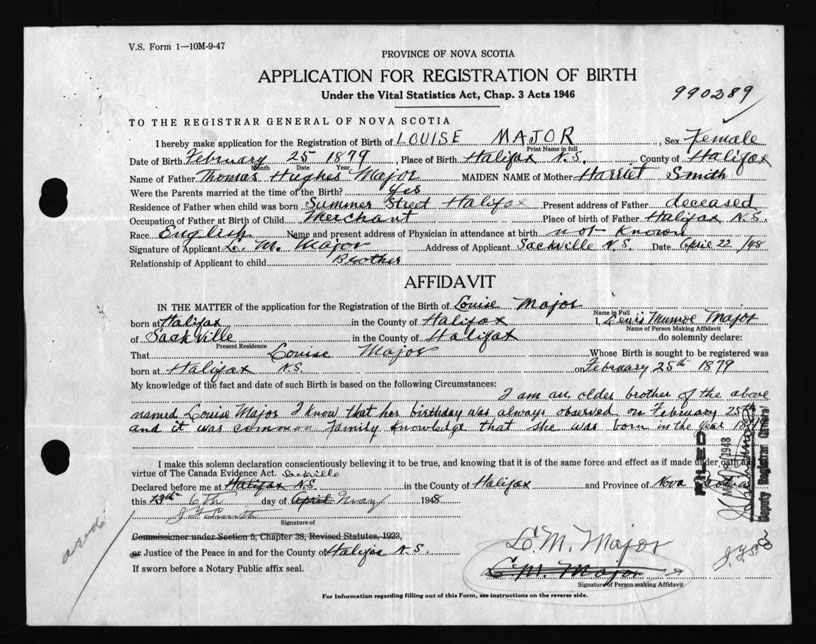 V.S. Form 1—10M-9-47
PROVINCE OF NOVA SCOTIA
APPLICATION FOR REGISTRATION OF BIRTH
990289
Under the Vital Statistics Act, Chap. 3 Acts 1946
TO THE REGISTRAR GENERAL OF NOVA SCOTIA
I hereby make application for the Registration of Birth of LOUISE MAJOR, Sex Female
Print Name in full
Date of Birth February 25 1879, Place of Birth Halifax N.S. County of Halifax
Month Date Year
Name of Father Thomas Hughes Major MAIDEN NAME of Mother Harriet Smith
Were the Parents married at the time of the Birth? Yes
Residence of Father when child was born Summer Street Halifax Present address of Father deceased
Occupation of Father at Birth of Child Merchant Place of birth of Father Halifax N.S.
Race English Name and present address of Physician in attendance at birth not known
Signature of Applicant L. M. Major Address of Applicant Sackville N.S. Date April 22/48
Relationship of Applicant to child Brother
AFFIDAVIT
IN THE MATTER of the application for the Registration of the Birth of Louise Major
Name in Full
born at Halifax in the County of Halifax I, Lewis Munroe Major
Name of Person Making Affidavit
of Sackville in the County of Halifax do solemnly declare:
Present Residence
That Louise Major Whose Birth is sought to be registered was
born at Halifax N.S. on February 25th 1879
My knowledge of the fact and date of such Birth is based on the following Circumstances:
I am an older brother of the above
named Louise Major I know that her birthday was always observed on February 25th
and it was common family knowledge that she was born in the year 1879
I make this solemn declaration conscientiously believing it to be true, and knowing that it is of the same force and effect as if made under oath and
virtue of The Canada Evidence Act.
Sackville
Declared before me at Halifax N.S. in the County of Halifax and Province of Nova Scotia
this 13th 6th day of April May 1948
Signature of
Commissioner under Section 5, Chapter 38, Revised Statutes, 1923,
or Justice of the Peace in and for the County of Halifax N.S.
If sworn before a Notary Public affix seal.
L. M. Major
L. M. Major
Signature of Person making Affidavit
For Information regarding filling out of this Form, see instructions on the reverse side.
FILED
1948
Deputy Registrar General